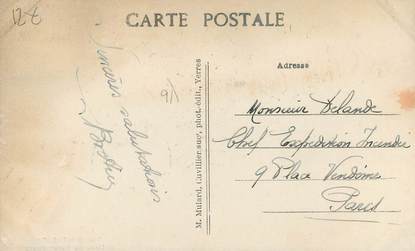 12€
CARTE POSTALE
Sincères salutations
9/
M. Mulard, Cuvillier-succr, phot.-édit., Yerres
Adresse
Monsieur Delande
Chef Expédition Incendie
9 Place Vendôme
Paris